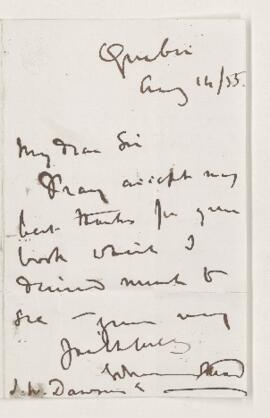 Quebec
Aug 14/55.
My dear Sir
Pray accept my
best thanks for your
book which I
desired much to
see – your very
faithfully
Edmund Head
J. W. Dawson